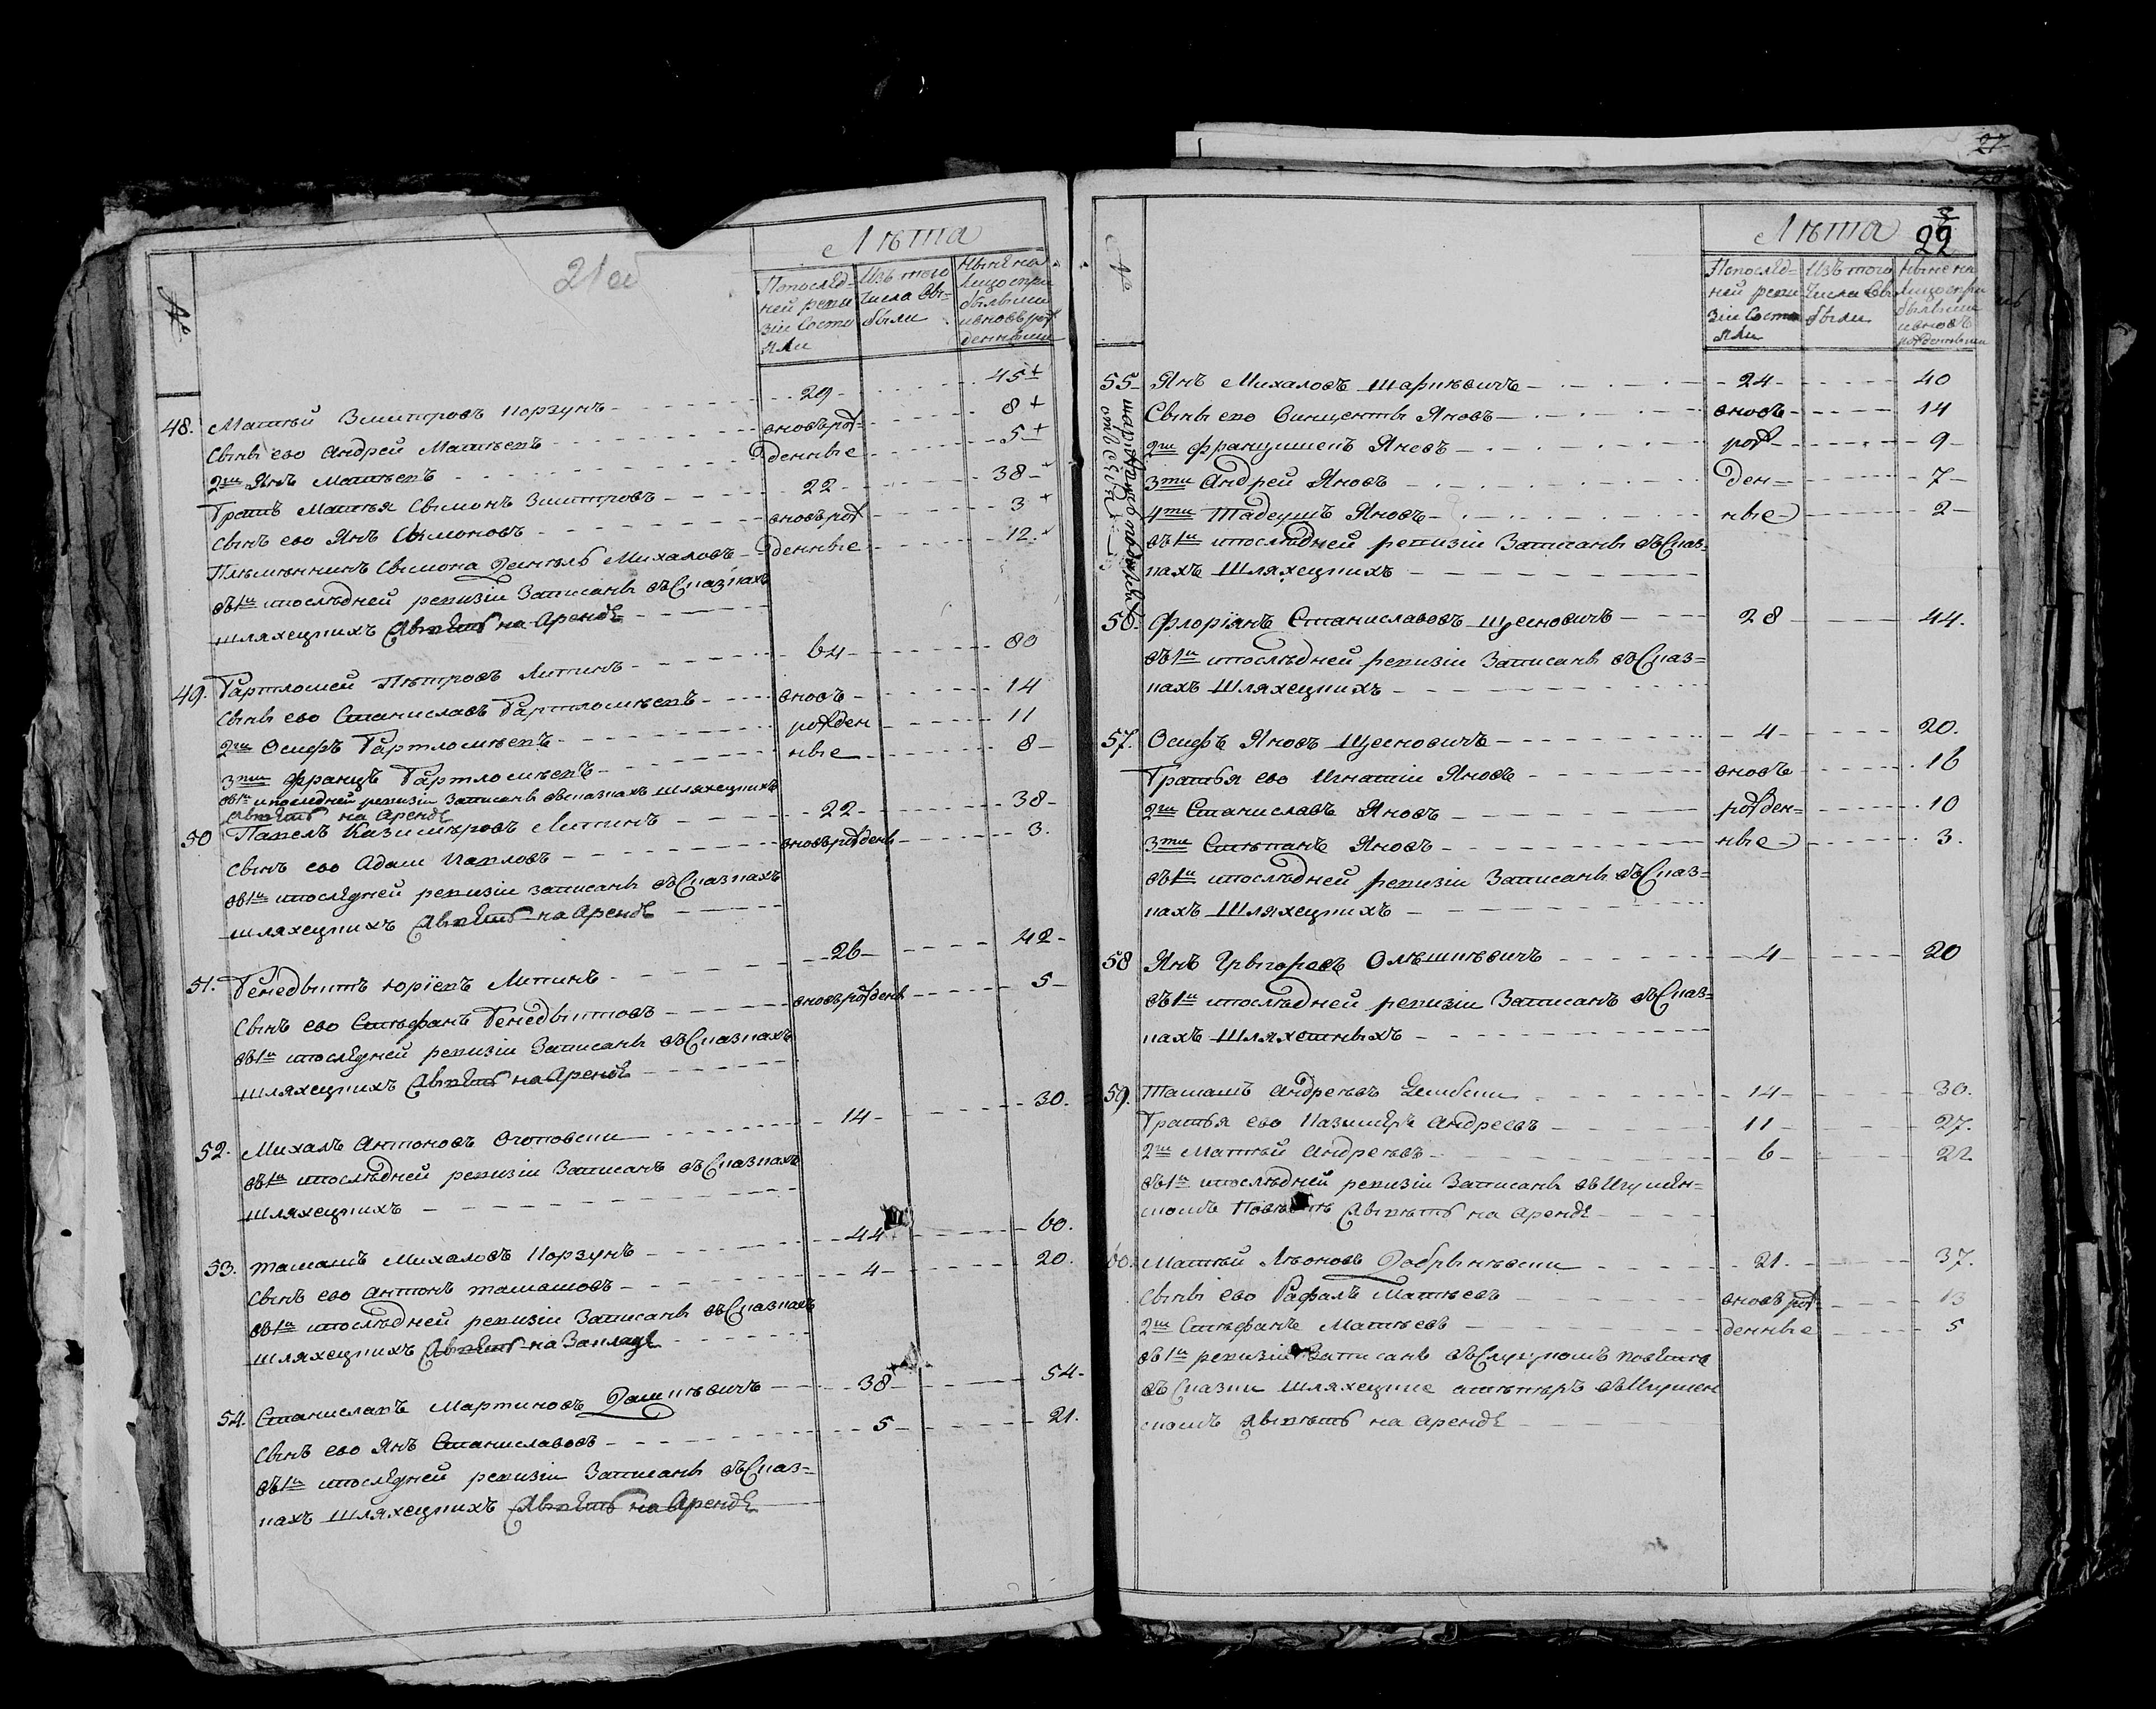 21 об
№
Лѣта
Попослѣд=
ней реви
зіи Состо
яли
Изъ того
Числа Вы=
были
Нынѣ на
Лицо при
былыми
ивновь рож
денными
48. Матѣй Змитровъ Корзунъ 29 45
Сыны ево Андрей Матѣевъ вновь рож 8
2й Янъ Матѣевъ денные 5
Братъ Матѣя Сымонъ Змитровъ 22 38
Сынъ ево Янъ Сымоновъ вновь рож 3
Племянникъ Сымона Данѣль Михаловъ денные 12
въ1й ипослѣдней ревизіи Записаны въ Сказкахъ
шляхецкихъ Живетъ на Арендѣ
49. Бартломей Пѣтровъ Литинъ 64 80
Сыны ево Станиславъ Бартломѣевъ вновь 14
2й Осифъ Бартломѣевъ рожден 11
3ти Францъ Бартломѣевъ ные 8
въ1й ипоследней ревизіи Записаны въсказкахъ шляхецкихъ
Живетъ на Арендѣ
50 Павелъ Казимѣровъ Литинъ 22 38
Сынъ ево Адам Павловъ вновь рожденъ 3.
въ1й ипослѣдней ревизіи записаны въ Сказкахъ
шляхецкихъ Живетъ на Арендѣ
51. Бенедыктъ Юріевъ Литинъ 26 42
Сынъ ево Стѣфанъ Бенедыктовъ вновь рожденъ 5
въ1й ипослѣдней ревизіи Записаны въ Сказкахъ
шляхецкихъ Живетъ на Арендѣ
52. Михалъ Антоновъ 14 30.
въ1й ипослѣдней ревизіи Записанъ въ Сказкахъ
шляхецкихъ
53. Тамашъ Михаловъ Корзунъ 44 60.
Сынъ ево Антонъ Тамашовъ 4 20.
въ1й ипослѣдней ревизіи Записаны въ Сказкахъ
шляхецкихъ Живетъ на Закладѣ
54. Станиславъ Мартиновъ Дашкѣвичъ 38 54
Сынъ ево Янъ Станиславовъ 5 21.
въ1й ипослѣдней ревизіи Записаны въ Сказ=
кахъ шляхецкихъ Живетъ на Арендѣ
27
22
№
Лѣта
Попослѣд=
ней реви
зіи Состо
яли
Изъ того
Числа Вы
были
Нынѣ на
Лицо при
былыми
ивновь
рожденными
55 Янъ Михаловъ Шаркѣвичъ 24 40
Сыны ево Винценты Яновъ вновь 14
2й Францишекъ Яновъ рож 9
3ти Андрей Яновъ ден= 7
4ти Тадеушъ Яновъ ные 2
въ1й ипослѣдней ревизіи Записаны въ Сказ=
кахъ Шляхецкихъ
56. Флоріянъ Станиславовъ Щесновичъ 28 44.
въ1й ипослѣдней ревизіи Записаны въ Сказ=
кахъ Шляхецкихъ
57. Осифъ Яновъ Щесновичъ 4 20.
Братья ево Игнатіи Яновъ вновь 16
2й Станиславъ Яновъ рожден= 10
3ти Стѣпанъ Яновъ ные 3.
въ1й ипослѣдней ревизіи Записаны въ Сказ=
кахъ Шляхецкихъ
58 Янъ Грыгоровъ Олѣшкѣвичъ 4 20
въ1й ипослѣдней ревизіи Записанъ въ Сказ=
кахъ Шляхетныхъ
59. Тамашъ Андрѣевъ 14 30.
Братья ево Казимѣръ Андреевъ 11 27.
2й Матѣй Андрѣевъ 6 22
въ1й ипослѣдней ревизіи Записаны въ Игумѣн=
скомъ Повѣтѣ Живѣтъ на Арендѣ
60. Матѣй Лѣоновъ Добрынѣвски 21. 37.
Сыны ево Рафалъ Матѣевъ вновь рож 13
2й Стѣфанъ Матѣевъ денные 5
въ1й ревизіи Записаны въ Слуцкомъ повѣтѣ
въ Сказки шляхецкие атѣпѣръ въ Игумен
скомъ Живѣтъ на Арендѣ